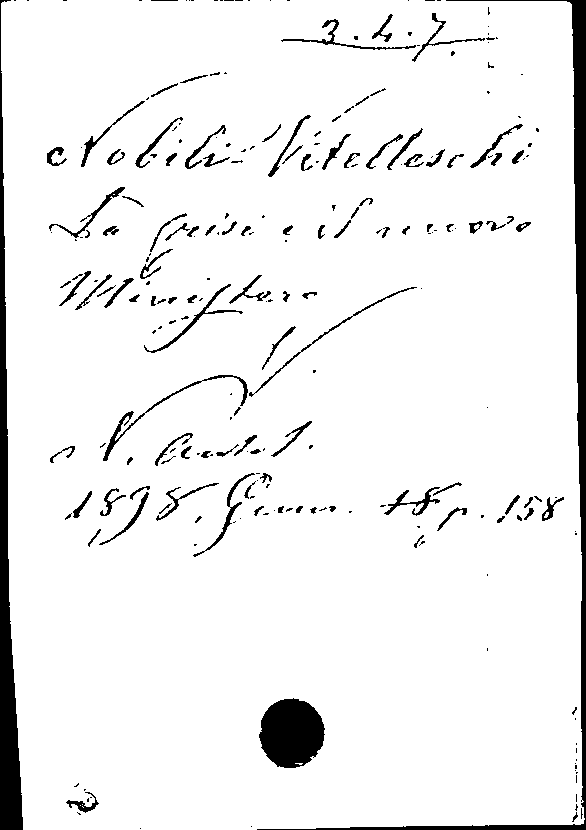 3.4.7.
Nobili-Vitelleschi
La crisi e il nuovo
Ministero
N. Antol.
1898, Genn. 18 p. 158